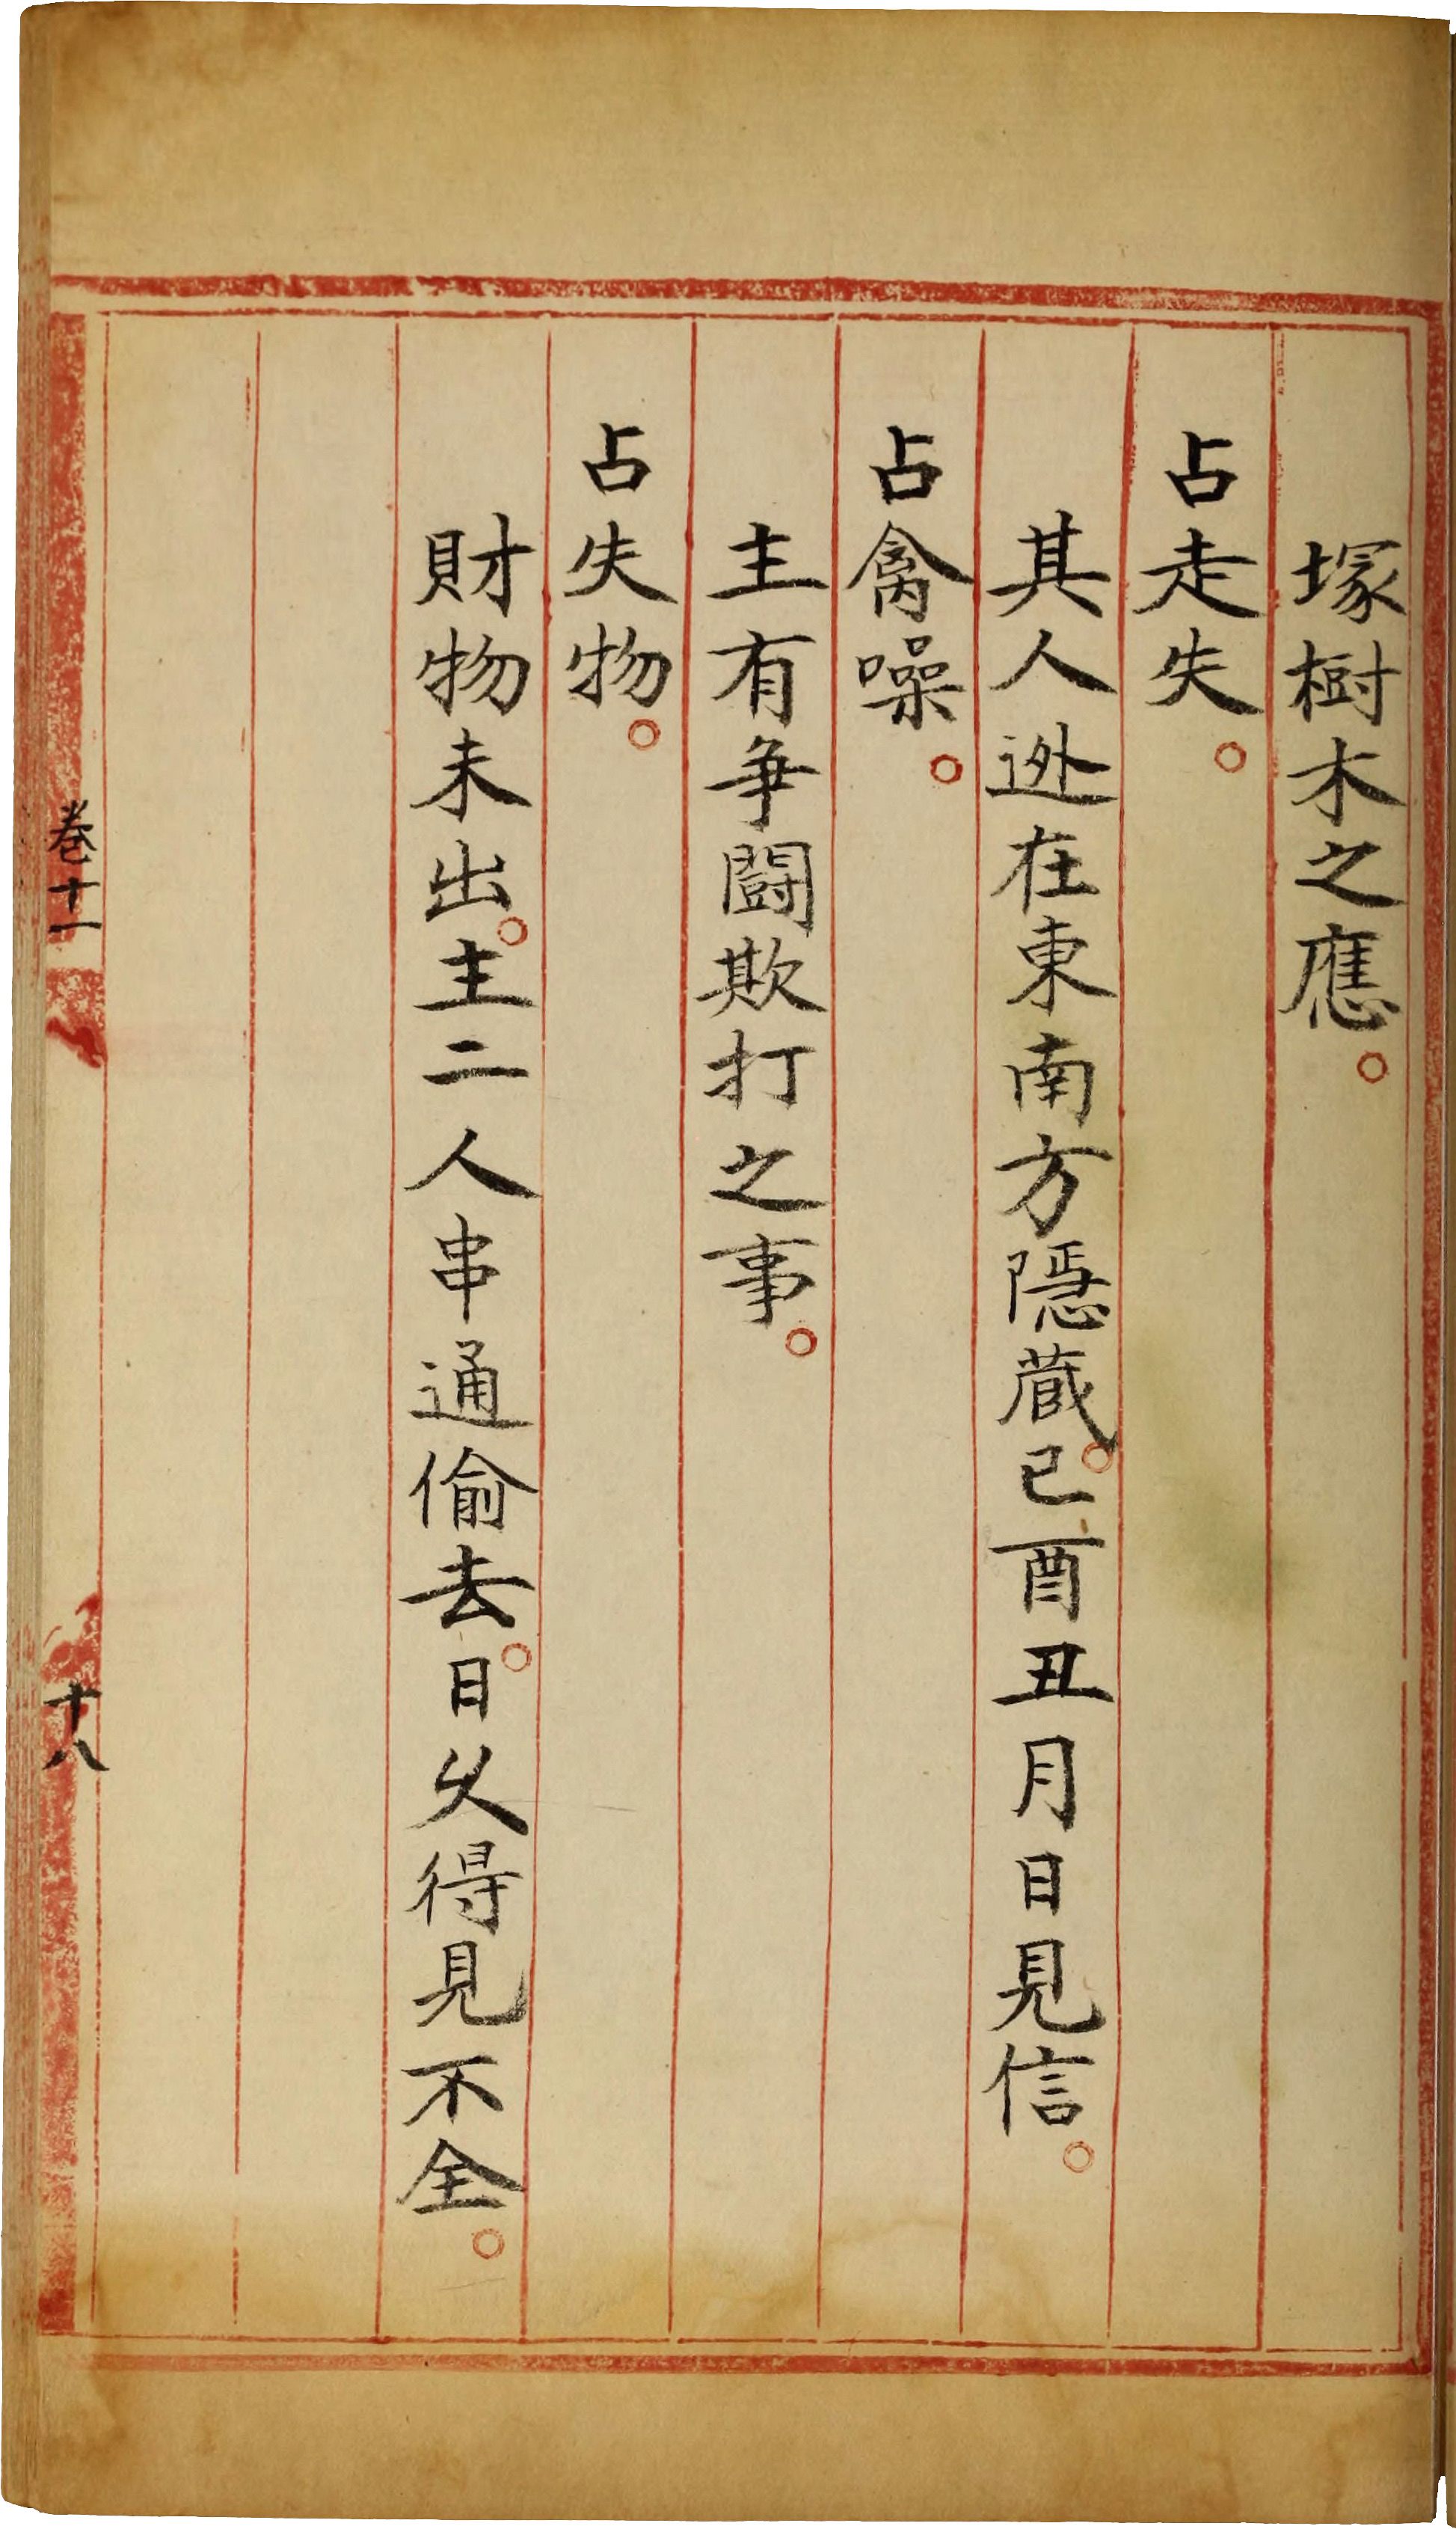 塚樹木之應。
占走失。
其人迯在東南方隱蔵。已酉丑月日見信。
占禽噪。
主有争闘欺打之事。
占失物。
財物未出。主二人串通偷去。日久得見不全。
卷十一
十八